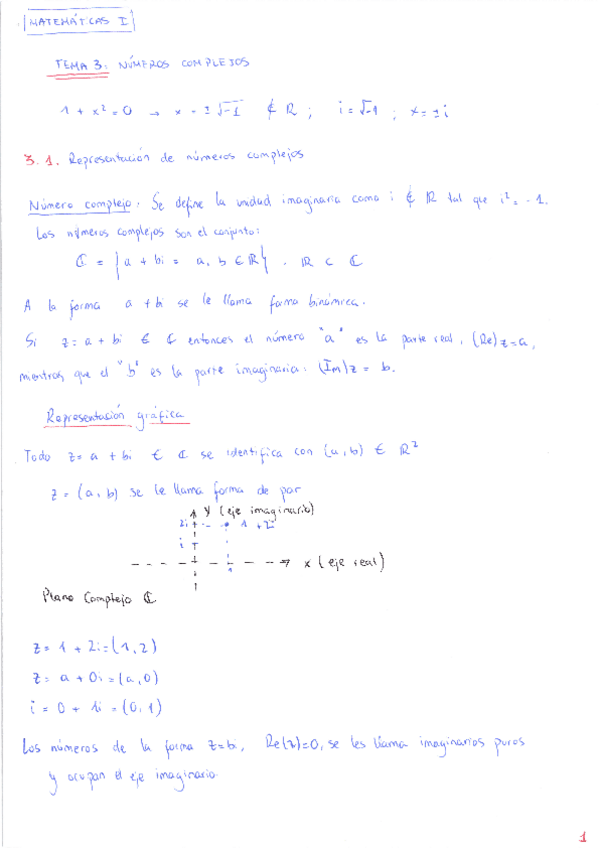 MATEMÁTICAS I
TEMA 3: NÚMEROS COMPLEJOS
1 + x² = 0 → x = ±√-1 ∉ ℝ ; i = √-1 ; x = ±i
3.1. Representación de números complejos
Número complejo: Se define la unidad imaginaria como i ∉ ℝ tal que i² = -1.
Los números complejos son el conjunto:
ℂ = {a + bi = a, b ∈ ℝ} . ℝ ⊂ ℂ
A la forma a + bi se le llama forma binómica.
Si z = a + bi ∈ ℂ entonces el número "a" es la parte real, (Re)z = a,
mientras que el "b" es la parte imaginaria: (Im)z = b.
Representación gráfica
Todo z = a + bi ∈ ℂ se identifica con (a, b) ∈ ℝ²
z = (a, b) se le llama forma de par
y (eje imaginario)
2i 1 + 2i
i
x (eje real)
1
Plano Complejo ℂ
z = 1 + 2i = (1, 2)
z = a + 0i = (a, 0)
i = 0 + 1i = (0, 1)
Los números de la forma z = bi, Re(z) = 0, se les llama imaginarios puros
y ocupan el eje imaginario.
1